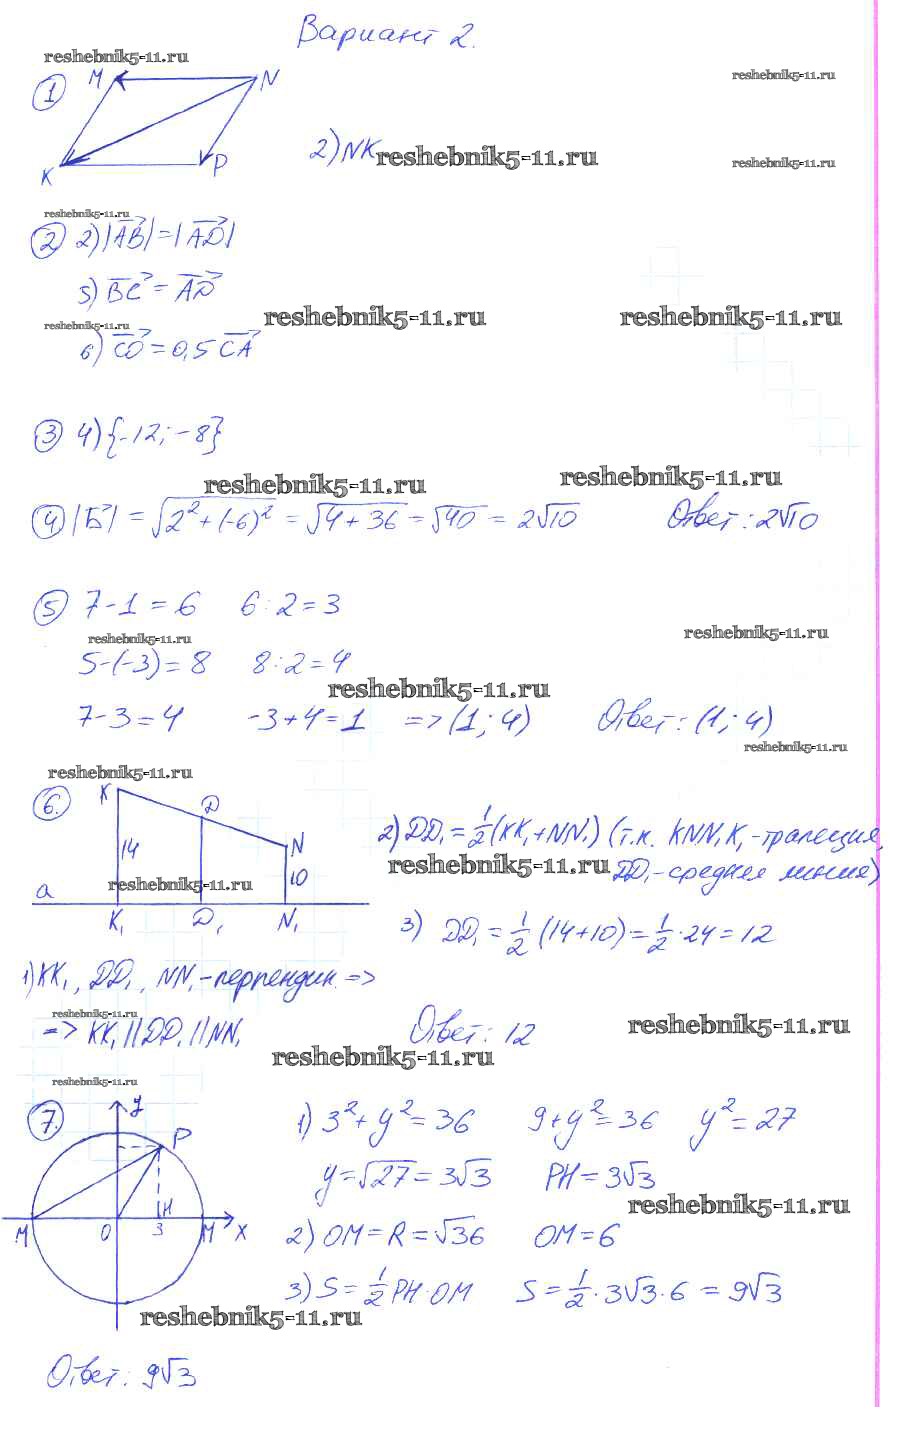 Вариант 2.
reshebnik5-11.ru
reshebnik5-11.ru
1
M
N
K
P
2) NK
reshebnik5-11.ru
reshebnik5-11.ru
reshebnik5-11.ru
2 2) |AB| = |AD|
5) BC = AD
reshebnik5-11.ru
reshebnik5-11.ru
reshebnik5-11.ru
6) CO = 0,5 CA
3 4) {-12; -8}
reshebnik5-11.ru
reshebnik5-11.ru
4 |Б| = √2² + (-6)² = √4 + 36 = √40 = 2√10 Ответ: 2√10
5 7 - 1 = 6 6 : 2 = 3
reshebnik5-11.ru
reshebnik5-11.ru
5 - (-3) = 8 8 : 2 = 4
reshebnik5-11.ru
7 - 3 = 4 -3 + 4 = 1 => (1; 4) Ответ: (1; 4)
reshebnik5-11.ru
reshebnik5-11.ru
6.
K
D
N
14
10
a
K₁
D₁
N₁
reshebnik5-11.ru
2) DD₁ = 1/2 (KK₁ + NN₁) (т.к. KNN₁K₁ - трапеция,
reshebnik5-11.ru
DD₁ - средняя линия)
3) DD₁ = 1/2 (14 + 10) = 1/2 · 24 = 12
1) KK₁, DD₁, NN₁ - перпендик. =>
reshebnik5-11.ru
=> KK₁ || DD₁ || NN₁
Ответ: 12
reshebnik5-11.ru
reshebnik5-11.ru
reshebnik5-11.ru
7.
y
P
H
M
O
3
M
x
1) 3² + y² = 36 9 + y² = 36 y² = 27
y = √27 = 3√3 PH = 3√3
reshebnik5-11.ru
2) OM = R = √36 OM = 6
3) S = 1/2 PH · OM S = 1/2 · 3√3 · 6 = 9√3
reshebnik5-11.ru
Ответ: 9√3